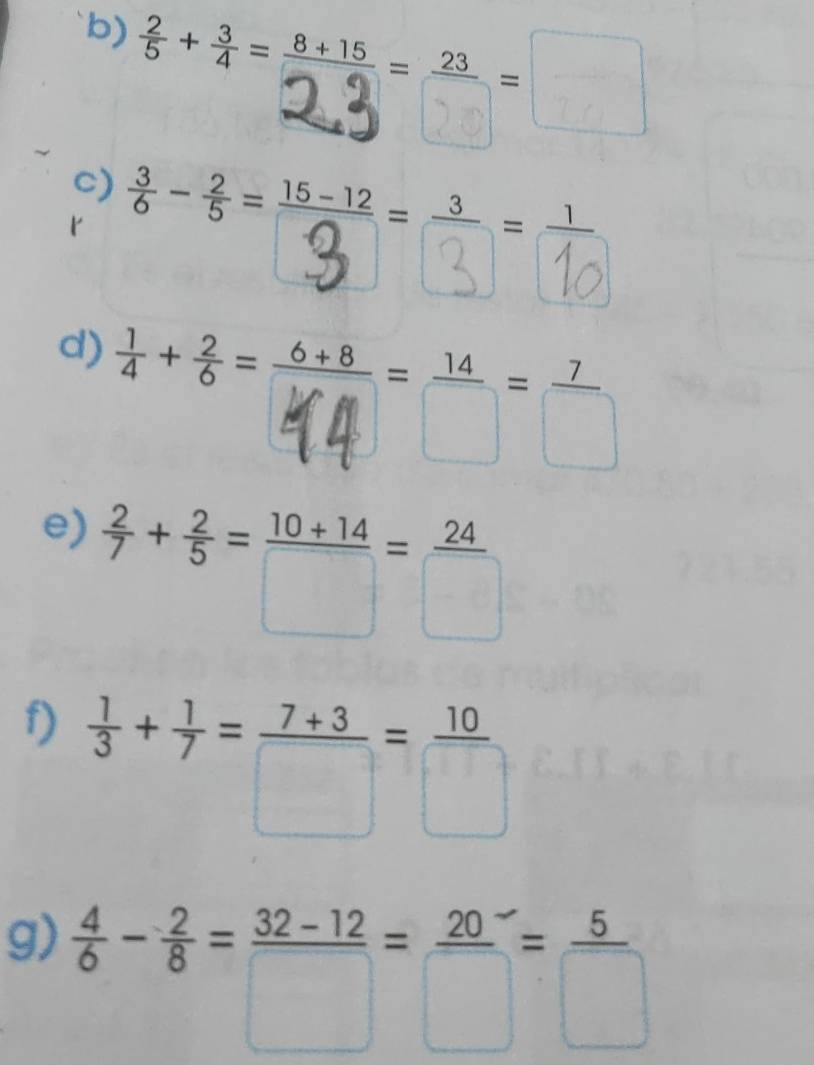 b) 2/5 + 3/4 = 8 + 15/23 = 23/20 =
c) 3/6 − 2/5 = 15 − 12/3 = 3/3 = 1/10
d) 1/4 + 2/6 = 6 + 8/14 = 14/ = 7/
e) 2/7 + 2/5 = 10 + 14/ = 24/
f) 1/3 + 1/7 = 7 + 3/ = 10/
g) 4/6 − 2/8 = 32 − 12/ = 20/ = 5/